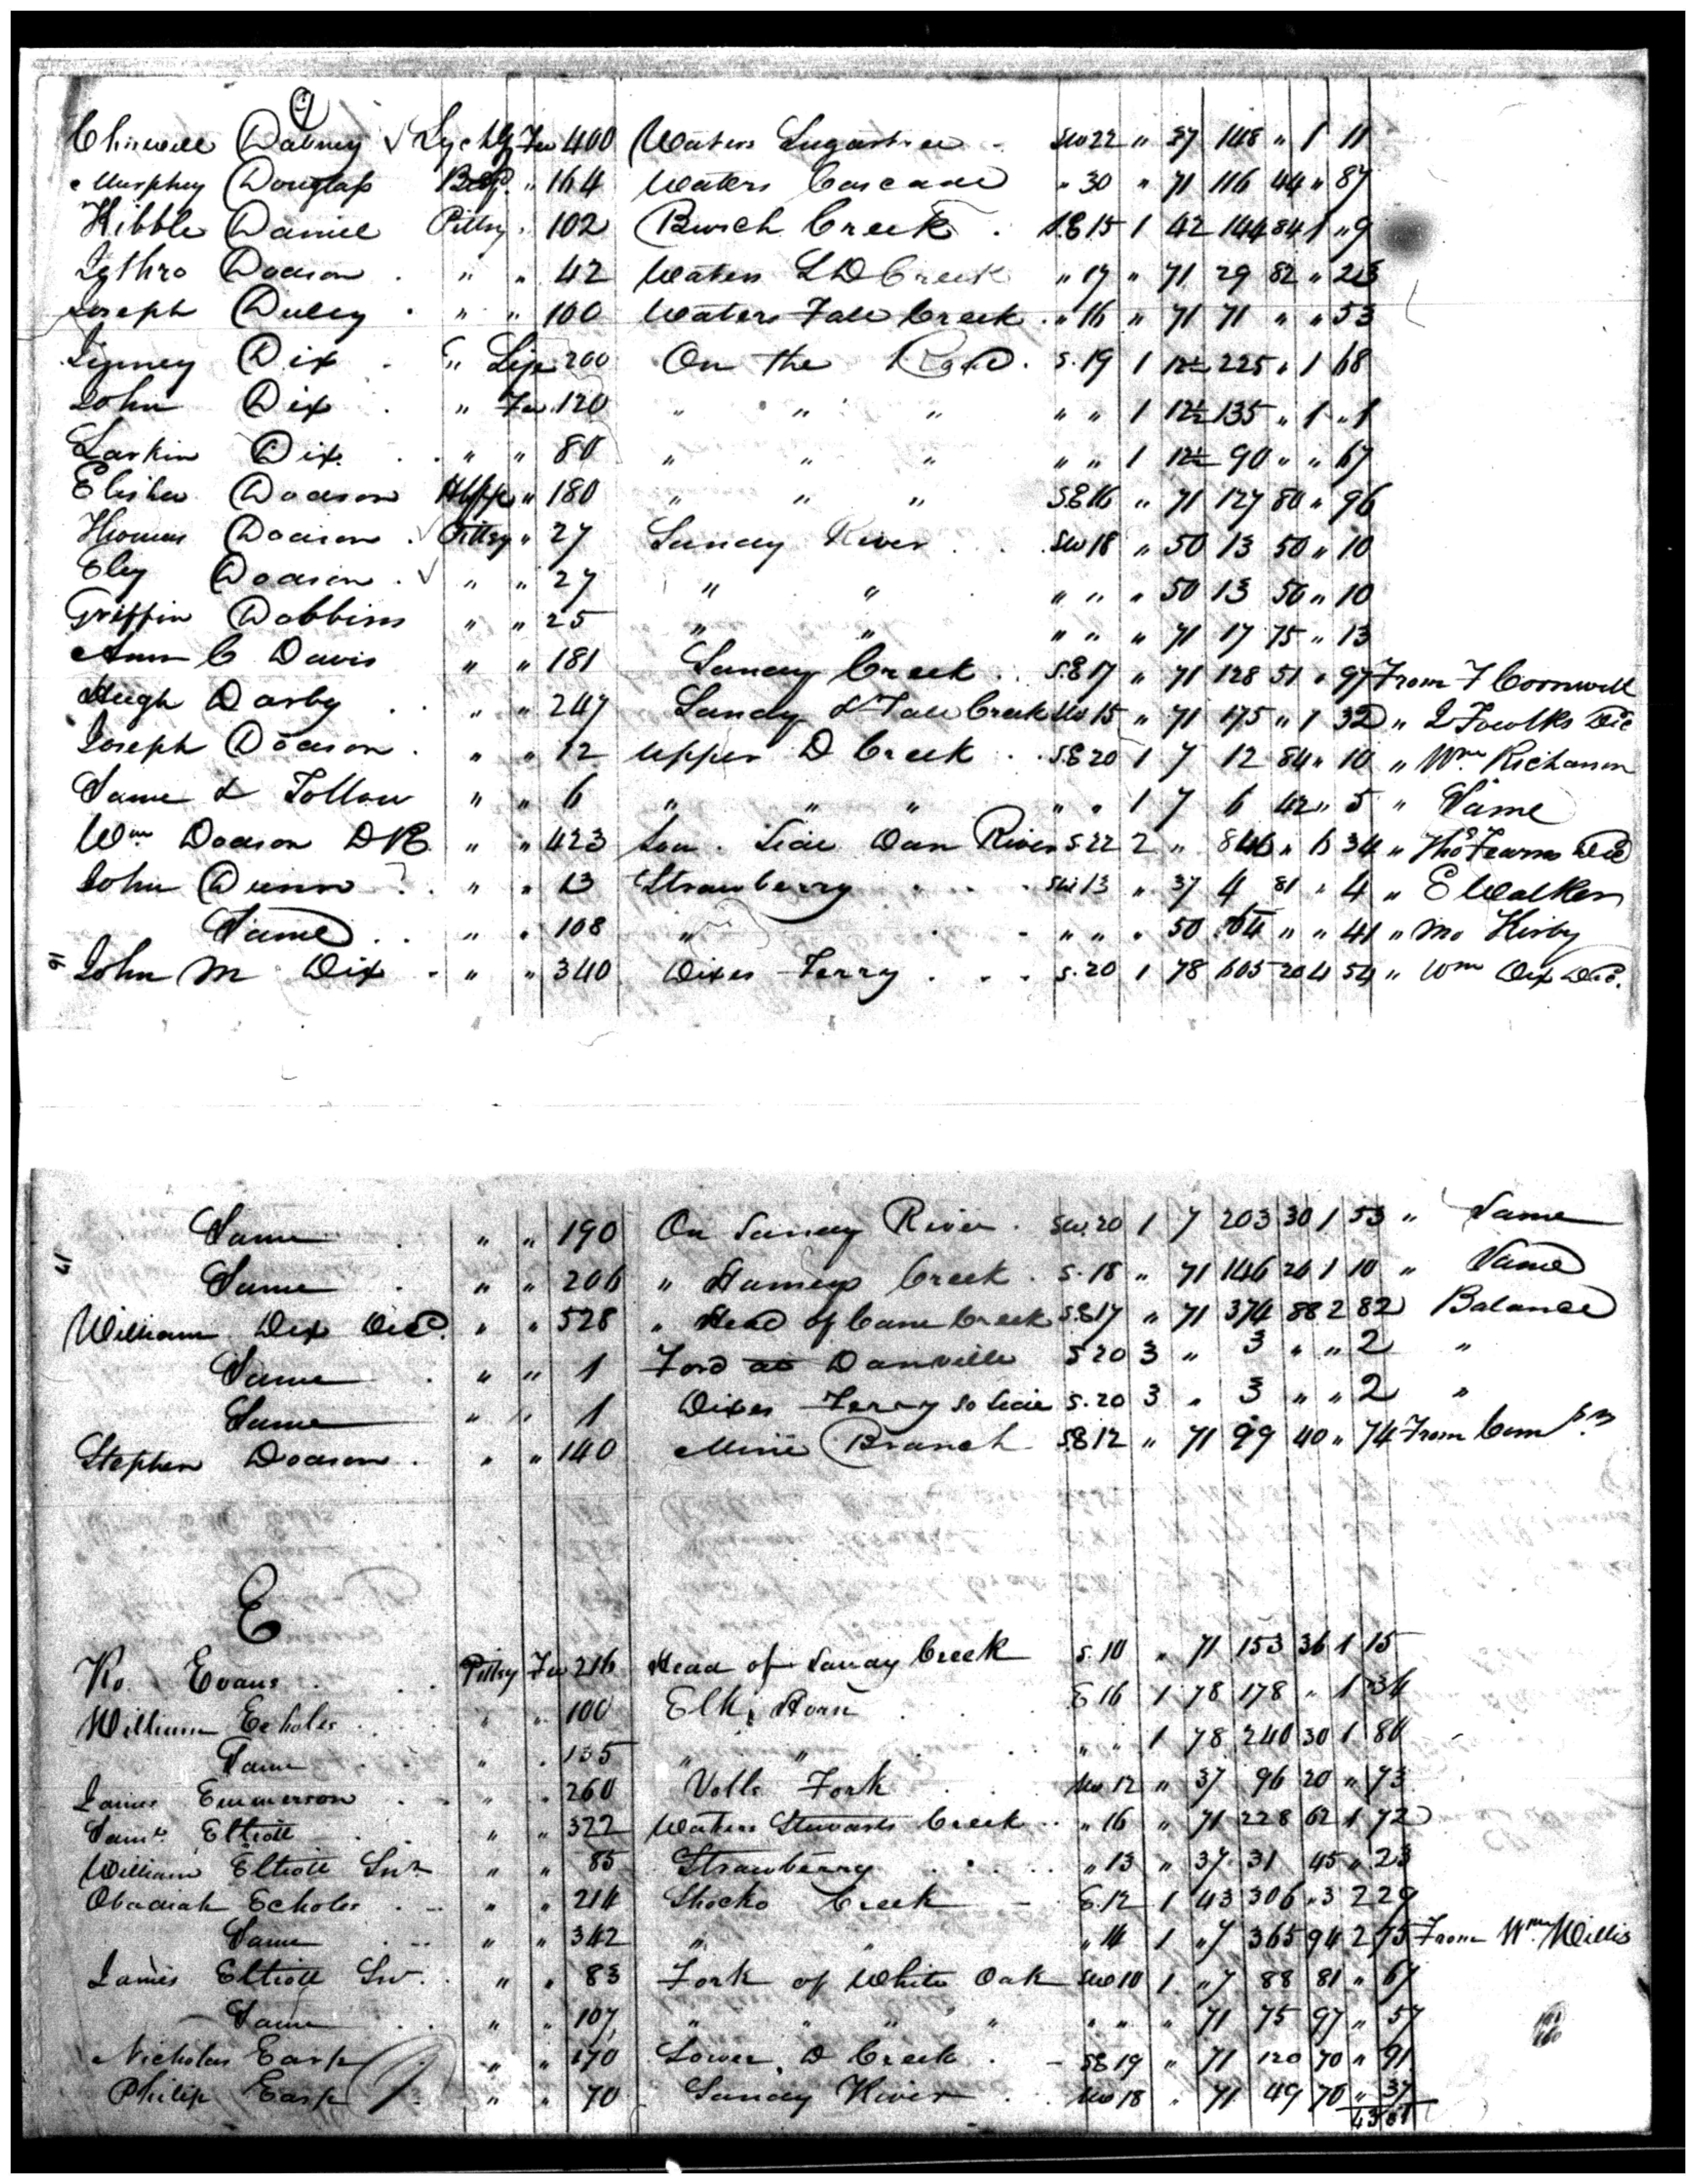 Chiswell Dabney √ Lychbg Fee 400 Waters Sugartree SW 22 " 37 148 " 1 11
Murphey Douglass Bedfd " 164 Waters Cascade " 30 " 71 116 44 " 87
Kibble Daniel Pittsy " 102 Burch Creek SE 15 1 42 144 84 1 " 9
Jethro Dodson " " 42 Waters L D Creek " 17 " 71 29 82 " 23
Joseph Duley " " 100 Waters Fall Creek " 16 " 71 71 " " 53
Dix " 200 On the Road S. 19 1 12½ 225 " 1 68
John Dix " Fee 120 " " " " " 1 12½ 135 " 1 " 1
Larkin Dix " " 80 " " " " " 1 12½ 90 " " 67
Elisha Dodson " 180 " " " SE 16 " 71 127 80 " 96
Thomas Dodson √ Pittsy " 27 Sandy River SW 18 " 50 13 50 " 10
Eley Dodson √ " " 27 " " " " " 50 13 50 " 10
Griffin Dobbins " " 25 " " " " " 71 17 75 " 13
Ann C Davis " " 181 Sandy Creek SE 17 " 71 128 51 " 97 From F Cornwell
Hugh Darby " " 247 Sandy & Fall Creek SW 15 " 71 175 " 1 32 " J Fowlks Decd
Joseph Dodson " " 12 Upper D Creek SE 20 1 7 12 84 " 10 " Wm Richardson
Same & Tollow " " 6 " " " " " 1 7 6 42 " 5 " Same
Wm Dodson DR " " 423 Sou. Side Dan River S 22 2 " 846 " 6 34 " Thos Fearns Decd
John Dunn " " 13 Strawberry SW 13 " 37 4 81 " 4 " E Walker
Same " " 108 " " " " 50 54 " " 41 " Mo Kirby
16 John M Dix " " 340 Dixes Ferry S. 20 1 78 605 20 4 54 " Wm Dix Decd.
17 Same " " 190 On Sandy River SW. 20 1 7 203 30 1 53 " Same
Same " " 206 " Creek S. 18 " 71 146 26 1 10 " Same
William Dix Decd. " " 528 " Head of Cane Creek SE 17 " 71 374 88 2 82 Balance
Same " " 1 Ford at Danville S 20 3 " 3 " " 2 "
Same " " 1 Dixes Ferry So Side S. 20 3 " 3 " " 2 "
Stephen Dodson " " 140 Mine Branch SE 12 " 71 99 40 " 74 From Com
E
Ro. Evans Pittsy Fee 216 Head of Sandy Creek S. 10 " 71 153 36 1 15
William Echoles " " 100 Elk Horn E 16 1 78 178 " 1 34
Same " " 135 " " " " 1 78 240 30 1 80
James Emmerson " " 260 Fork SW 12 " 37 96 20 " 73
Saml Elliott " " 322 Waters Stewarts Creek " 16 " 71 228 62 1 72
William Elliott Snr " " 85 Strawberry " 13 " 37 31 45 " 23
Obadiah Echoles " " 214 Shocko Creek E. 12 1 43 306 " 3 2 29
Same " " 342 " " " 14 1 " 7 365 94 2 75 From Wm Willis
James Elliott Snr. " " 83 Fork of White Oak SW 10 1 " 7 88 81 " 67
Same " " 107 " " " " " " " 71 75 97 " 57
Nicholas Earp " " 170 Lower D Creek SE 19 " 71 120 70 " 91
Philip Earp " " 70 Sandy River SW 18 " 71 49 70 " 37